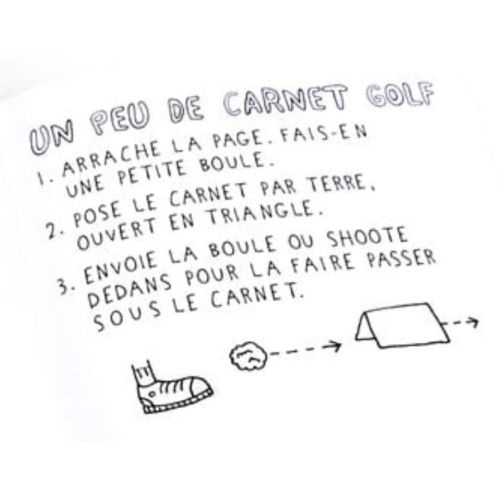 UN PEU DE CARNET GOLF
1. ARRACHE LA PAGE. FAIS-EN
UNE PETITE BOULE.
2. POSE LE CARNET PAR TERRE,
OUVERT EN TRIANGLE.
3. ENVOIE LA BOULE OU SHOOTE
DEDANS POUR LA FAIRE PASSER
SOUS LE CARNET.